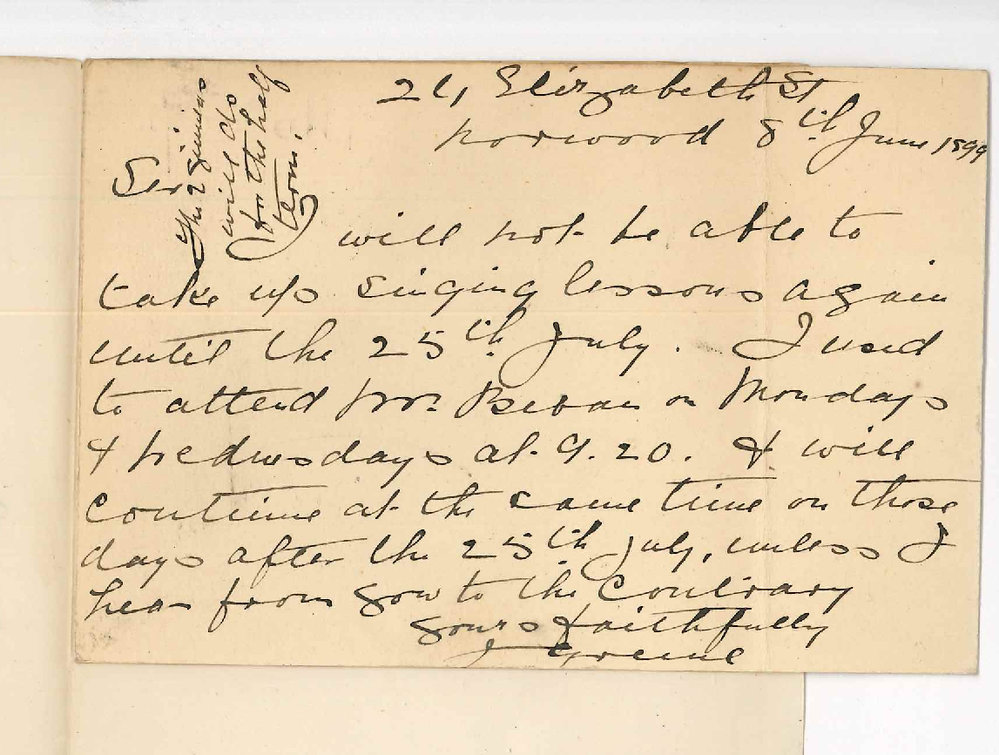 21, Elizabeth St
Norwood 8th June 1899
Sir
I will not be able to
take up singing lessons again
until the 25th July. I used
to attend Mr. Bevan on Mondays
& Wednesdays at 9.20. & will
continue at the same time on those
days after the 25th July, unless I
hear from you to the contrary
yours faithfully
J Greene
The 2 Guineas
will do
for the half
term.